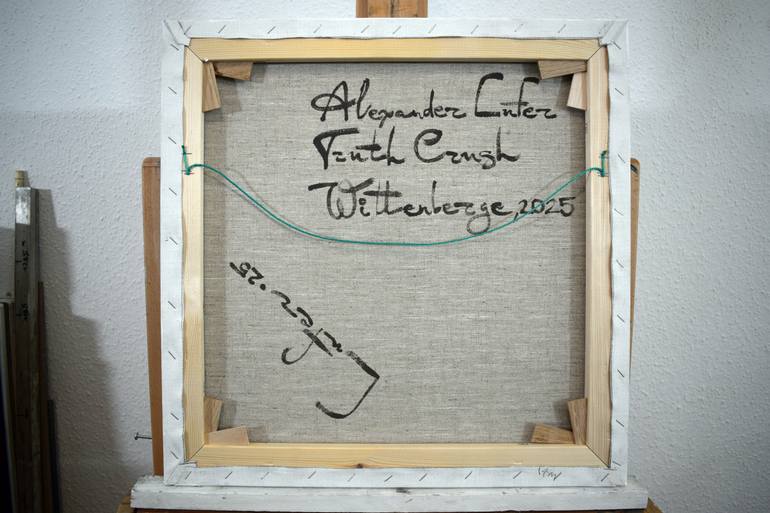 Alexander Lufer
Truth Crush
Wittenberge, 2025
Lufer .25